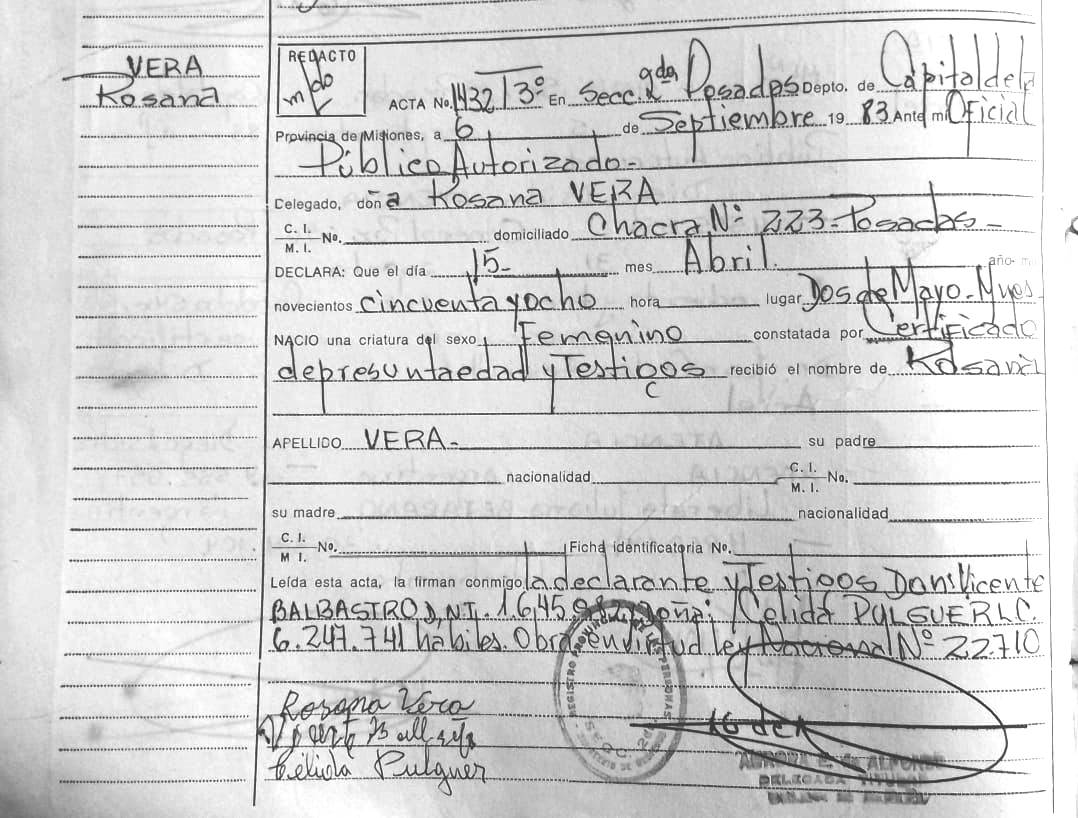 VERA
Rosana
REDACTO
ACTA No. 1432 T 3º En Secc. 2da Posadas Depto. de Capital de la
Provincia de Misiones, a 6 de Septiembre 19 83 Ante mi Oficial
Público Autorizado-
Celegado, doña Rosana VERA
C. I.
M. I. No. domiciliado Chacra Nº 223-Posadas-
DECLARA: Que el día 15- mes Abril. año
novecientos cincuenta y ocho hora lugar Dos de Mayo-Mnes
NACIO una criatura del sexo Femenino constatada por Certificado
de presunta edad y Testigos recibió el nombre de Rosana
APELLIDO VERA- su padre
nacionalidad C. I.
M. I. No.
su madre nacionalidad
C. I.
M I. No. Ficha identificatoria No.
Leída esta acta, la firman conmigo la declarante y Testigos Don: Vicente
BALBASTRO D.N.I. 1.645.982 y doña: Celida PULGUER L.C.
6.247.741 habiles. Obra en virtud ley Nacional Nº 22.710
Rosana Vera
Celida Pulguer
REGISTRO PROVINCIAL DE LAS PERSONAS
DELEGADA TITULAR